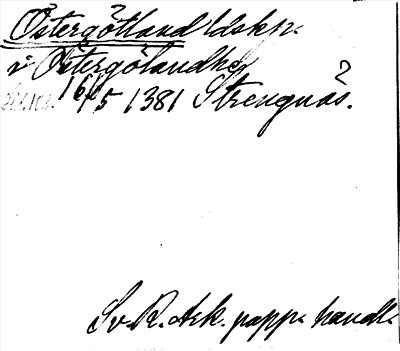 Östergötland ldskp.
i Östergötland
16/5 1381 Strengnäs.
?
Sv. R. Ark. papp. handl.